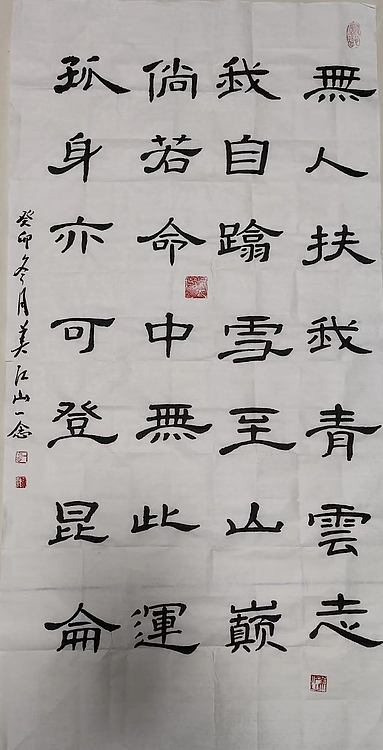 無人扶我青雲志
我自踏雪至山巅
倘若命中無此運
孤身亦可登昆侖
癸卯冬月美江山一念